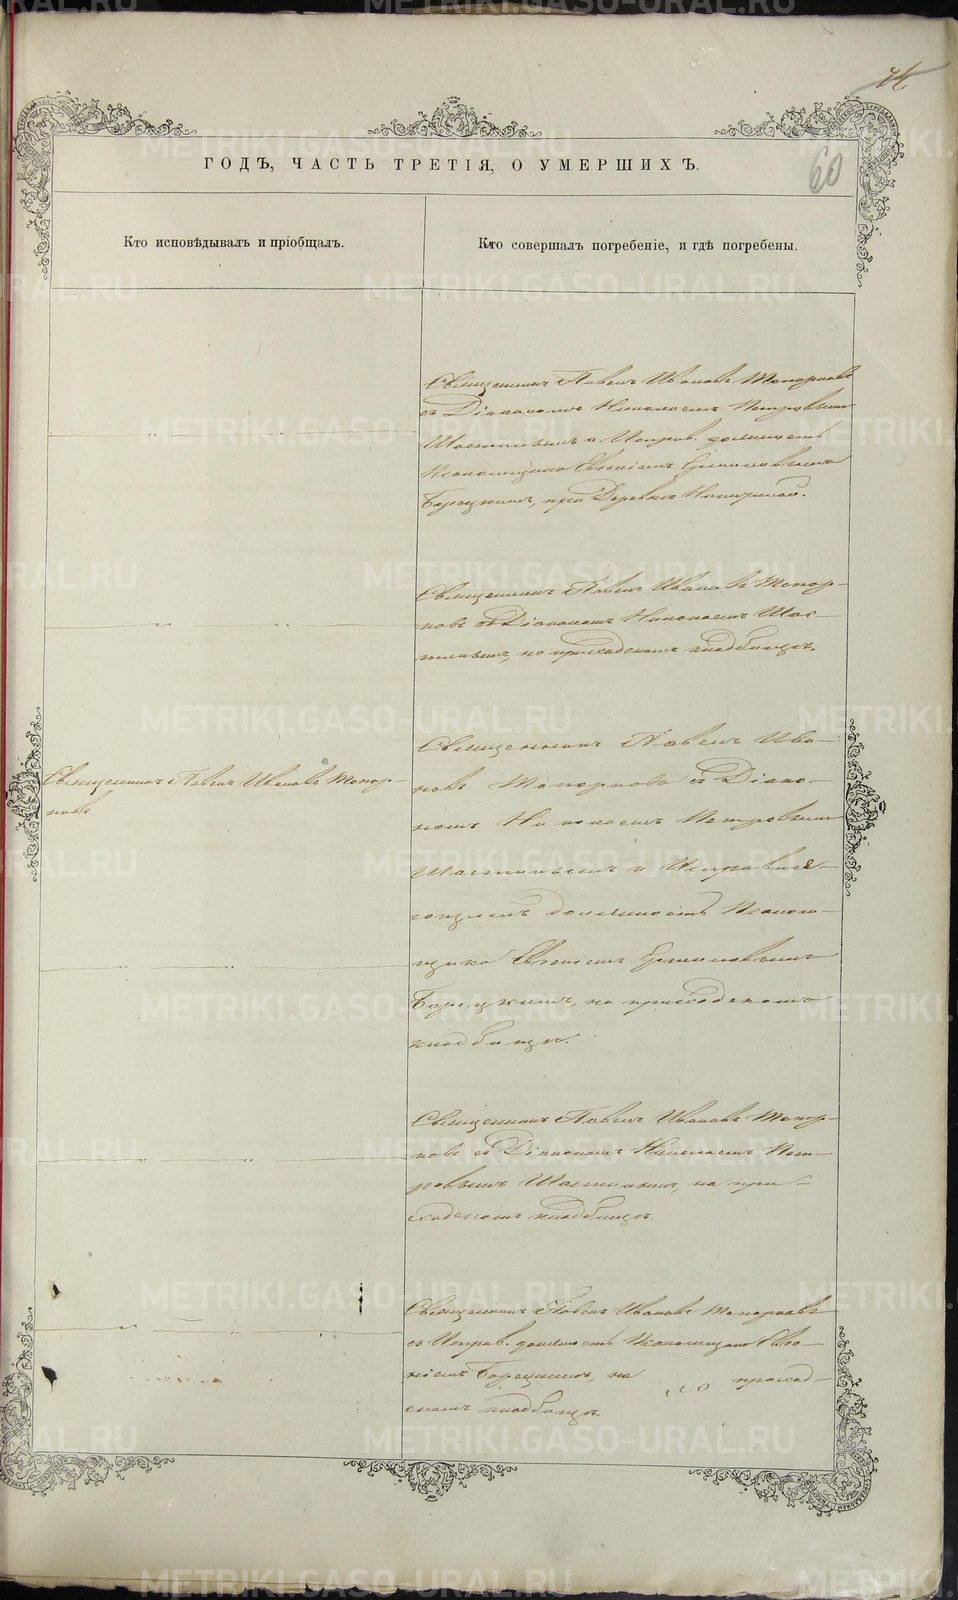 74.
ГОДЪ, ЧАСТЬ ТРЕТІЯ, О УМЕРШИХЪ.
60
Кто исповѣдывалъ и пріобщалъ.
Кто совершалъ погребеніе, и гдѣ погребены.
Священникъ Павелъ Ивановъ Топорковъ
съ Діакономъ Николаемъ Петровымъ
и Исправ. должность
Псаломщика Евгеніемъ
Борецкимъ, при Деревнѣ
Священникъ Павелъ Ивановъ Топор-
ковъ съ Діакономъ Николаемъ
на приходскомъ кладбищѣ.
Священникъ Павелъ Ивановъ Топор-
ковъ.
Священникъ Павелъ Ива-
новъ Топорковъ съ Діако-
номъ Николаемъ Петровымъ
и Исправля-
ющимъ должность Псалом-
щика Евгеніемъ
Борецкимъ, на приходскомъ
кладбищѣ.
Священникъ Павелъ Ивановъ Топор-
ковъ съ Діакономъ Николаемъ Пет-
ровымъ на при-
ходскомъ кладбищѣ.
Священникъ Павелъ Ивановъ Топорковъ
съ Исправ. должность Псаломщика Евге-
ніемъ Борецкимъ, на приход-
скомъ кладбищѣ.
METRIKI.GASO-URAL.RU